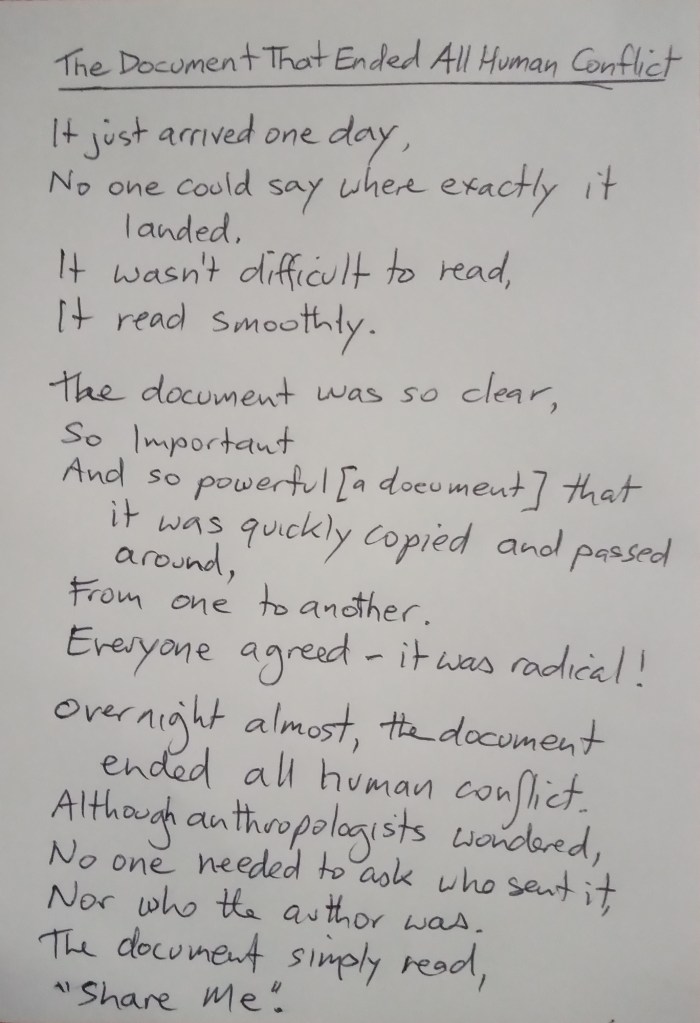 The Document That Ended All Human Conflict
It just arrived one day,
No one could say where exactly it
landed.
It wasn't difficult to read,
It read smoothly.
The document was so clear,
So Important
And so powerful [a document] that
it was quickly copied and passed
around,
From one to another.
Everyone agreed - it was radical!
Overnight almost, the document
ended all human conflict.
Although anthropologists wondered,
No one needed to ask who sent it,
Nor who the author was.
The document simply read,
"Share Me".